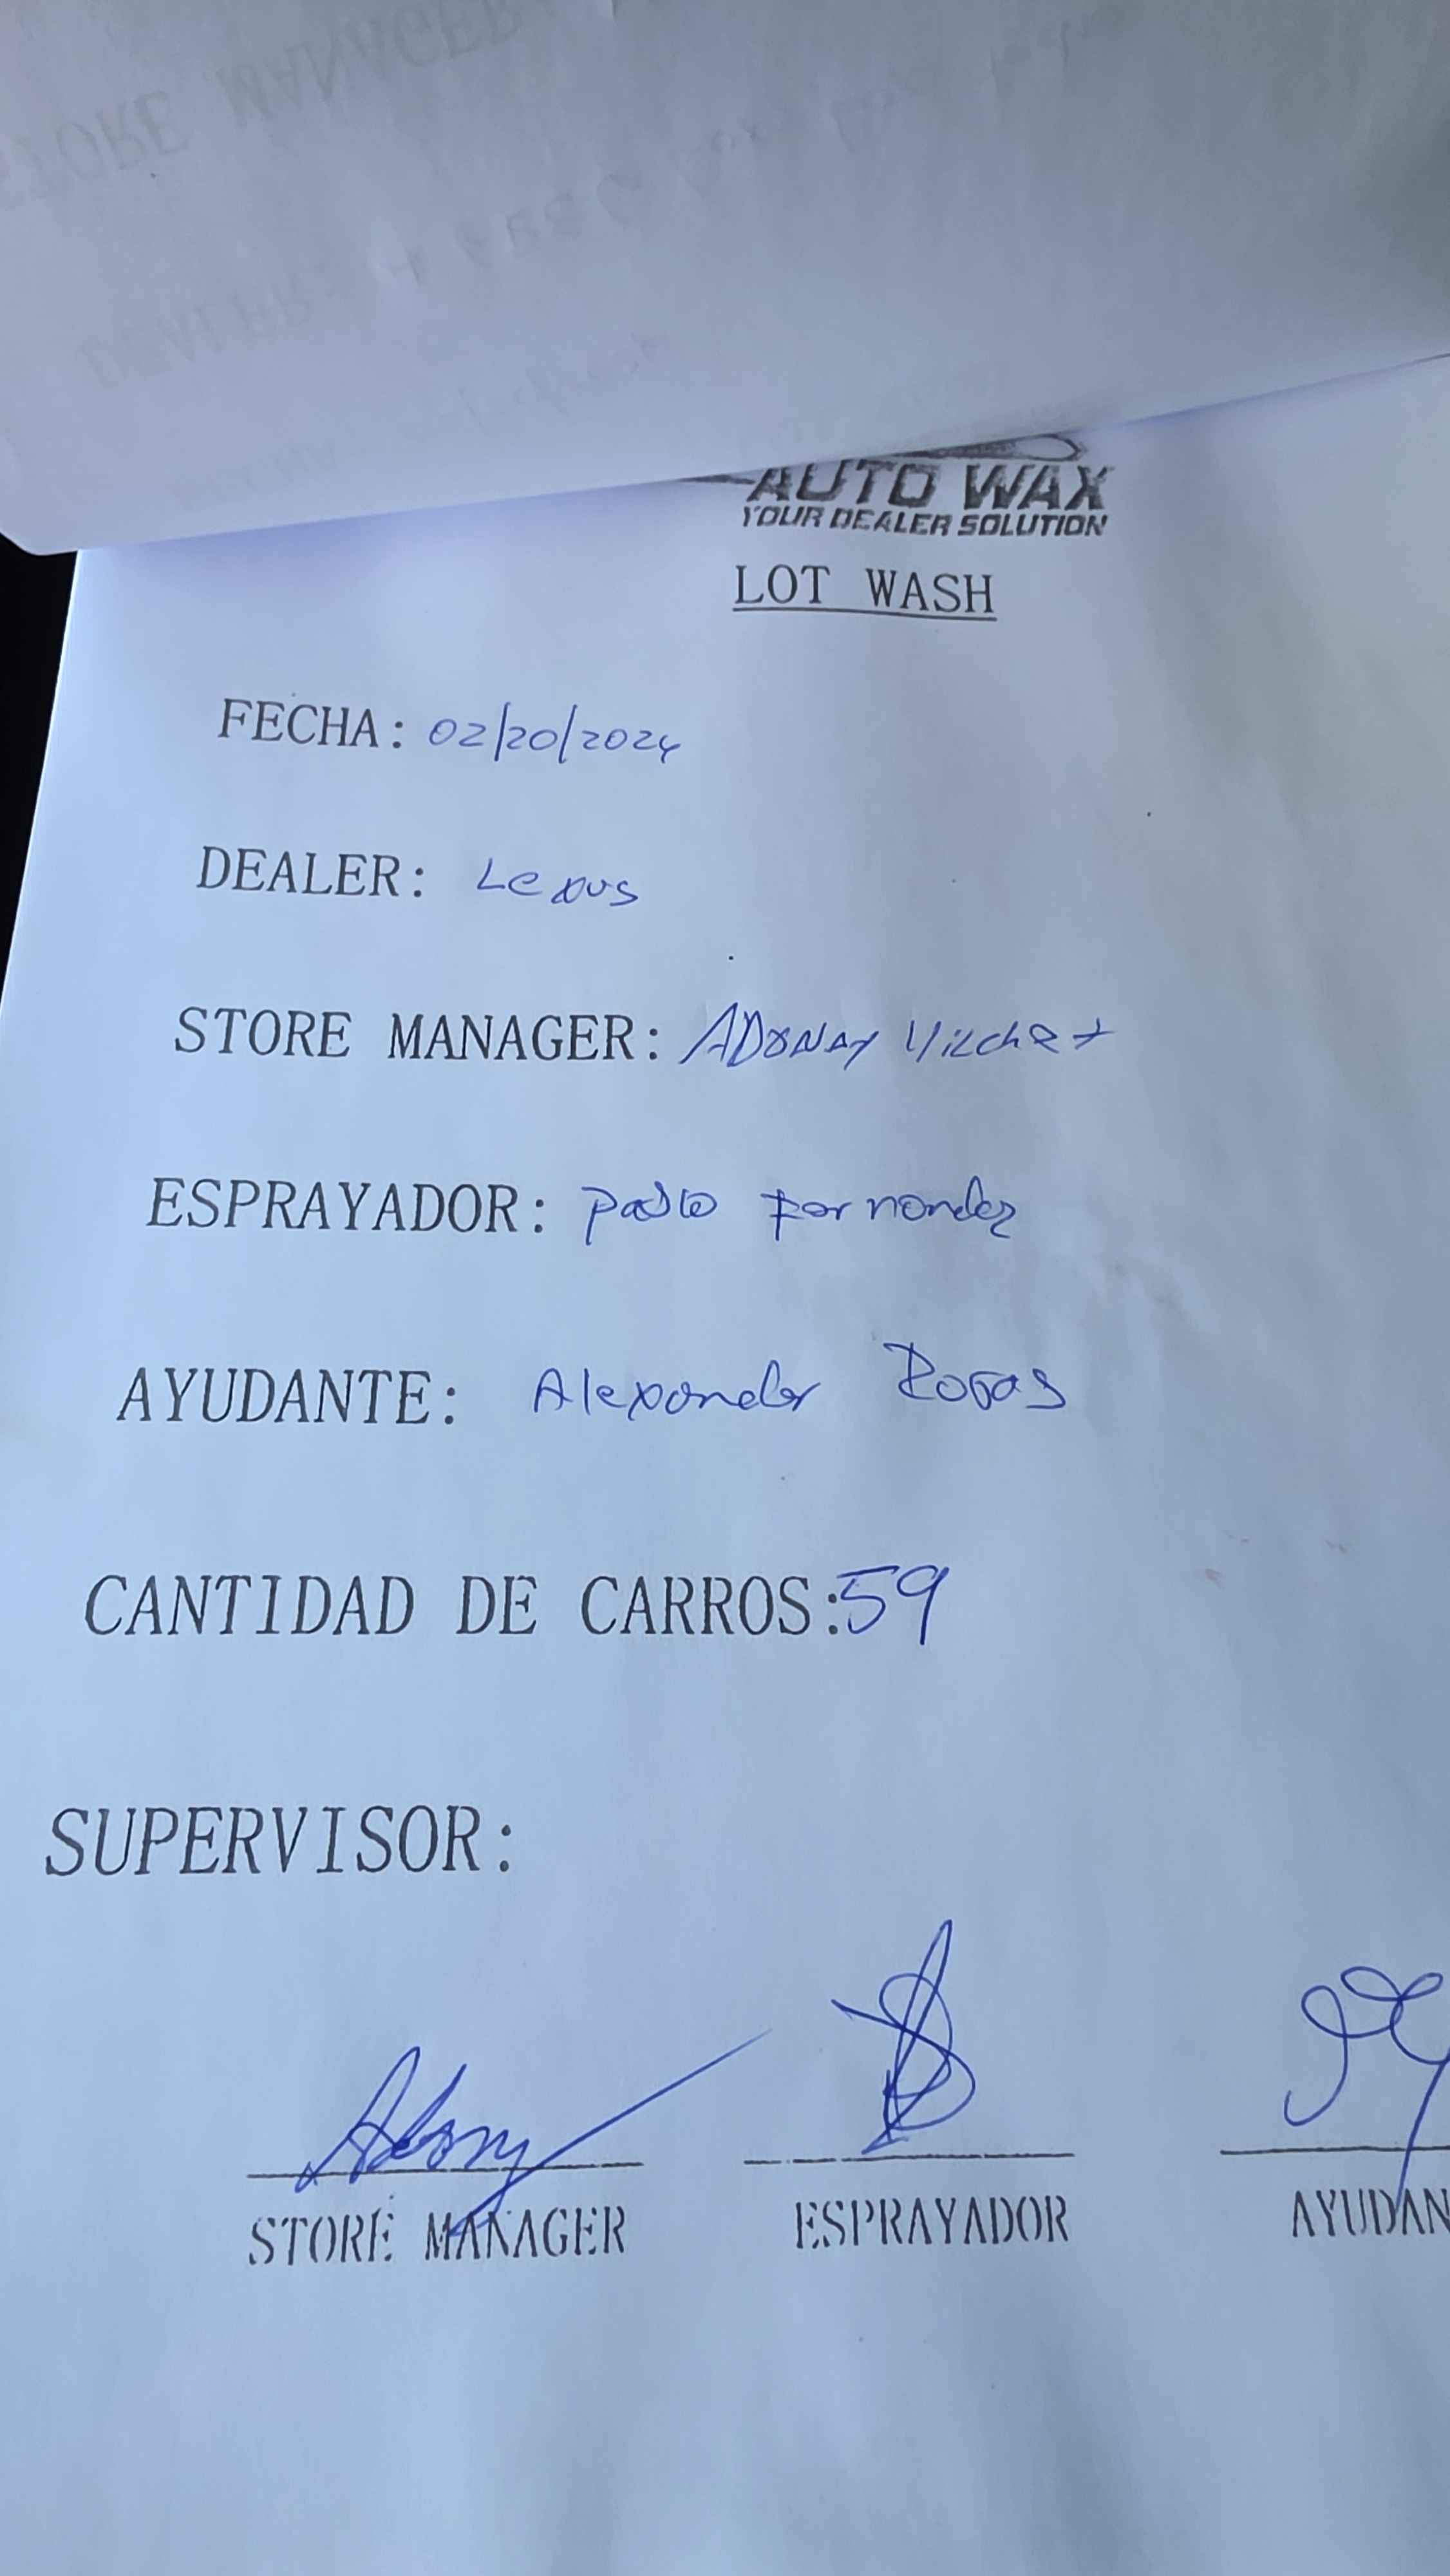 STORE MANAGER
DEALER:
AUTO WAX
YOUR DEALER SOLUTION
LOT WASH
FECHA: 02/20/2024
DEALER: Lexus
STORE MANAGER: ADONAY
ESPRAYADOR: Pablo Fernandez
AYUDANTE: Alexander Rojas
CANTIDAD DE CARROS: 59
SUPERVISOR:
STORE MANAGER ESPRAYADOR AYUDAN